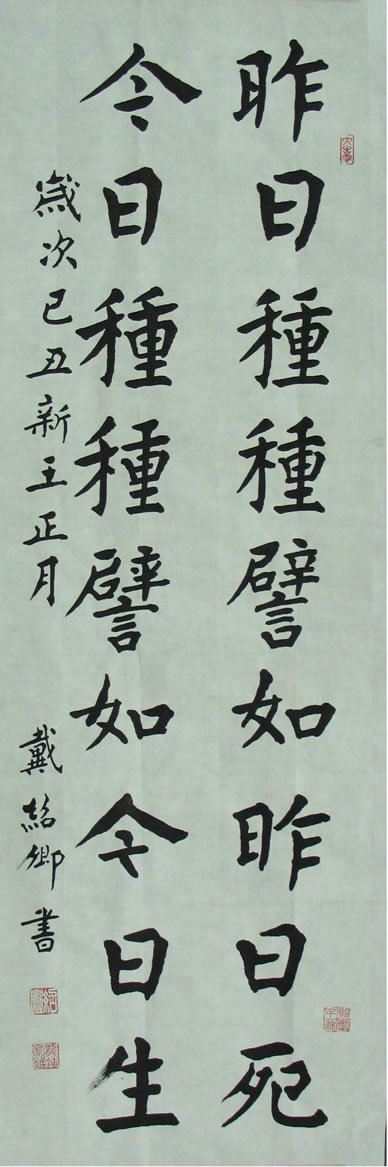 昨日種種譬如昨日死
今日種種譬如今日生
歲次己丑新王正月
戴紹卿書